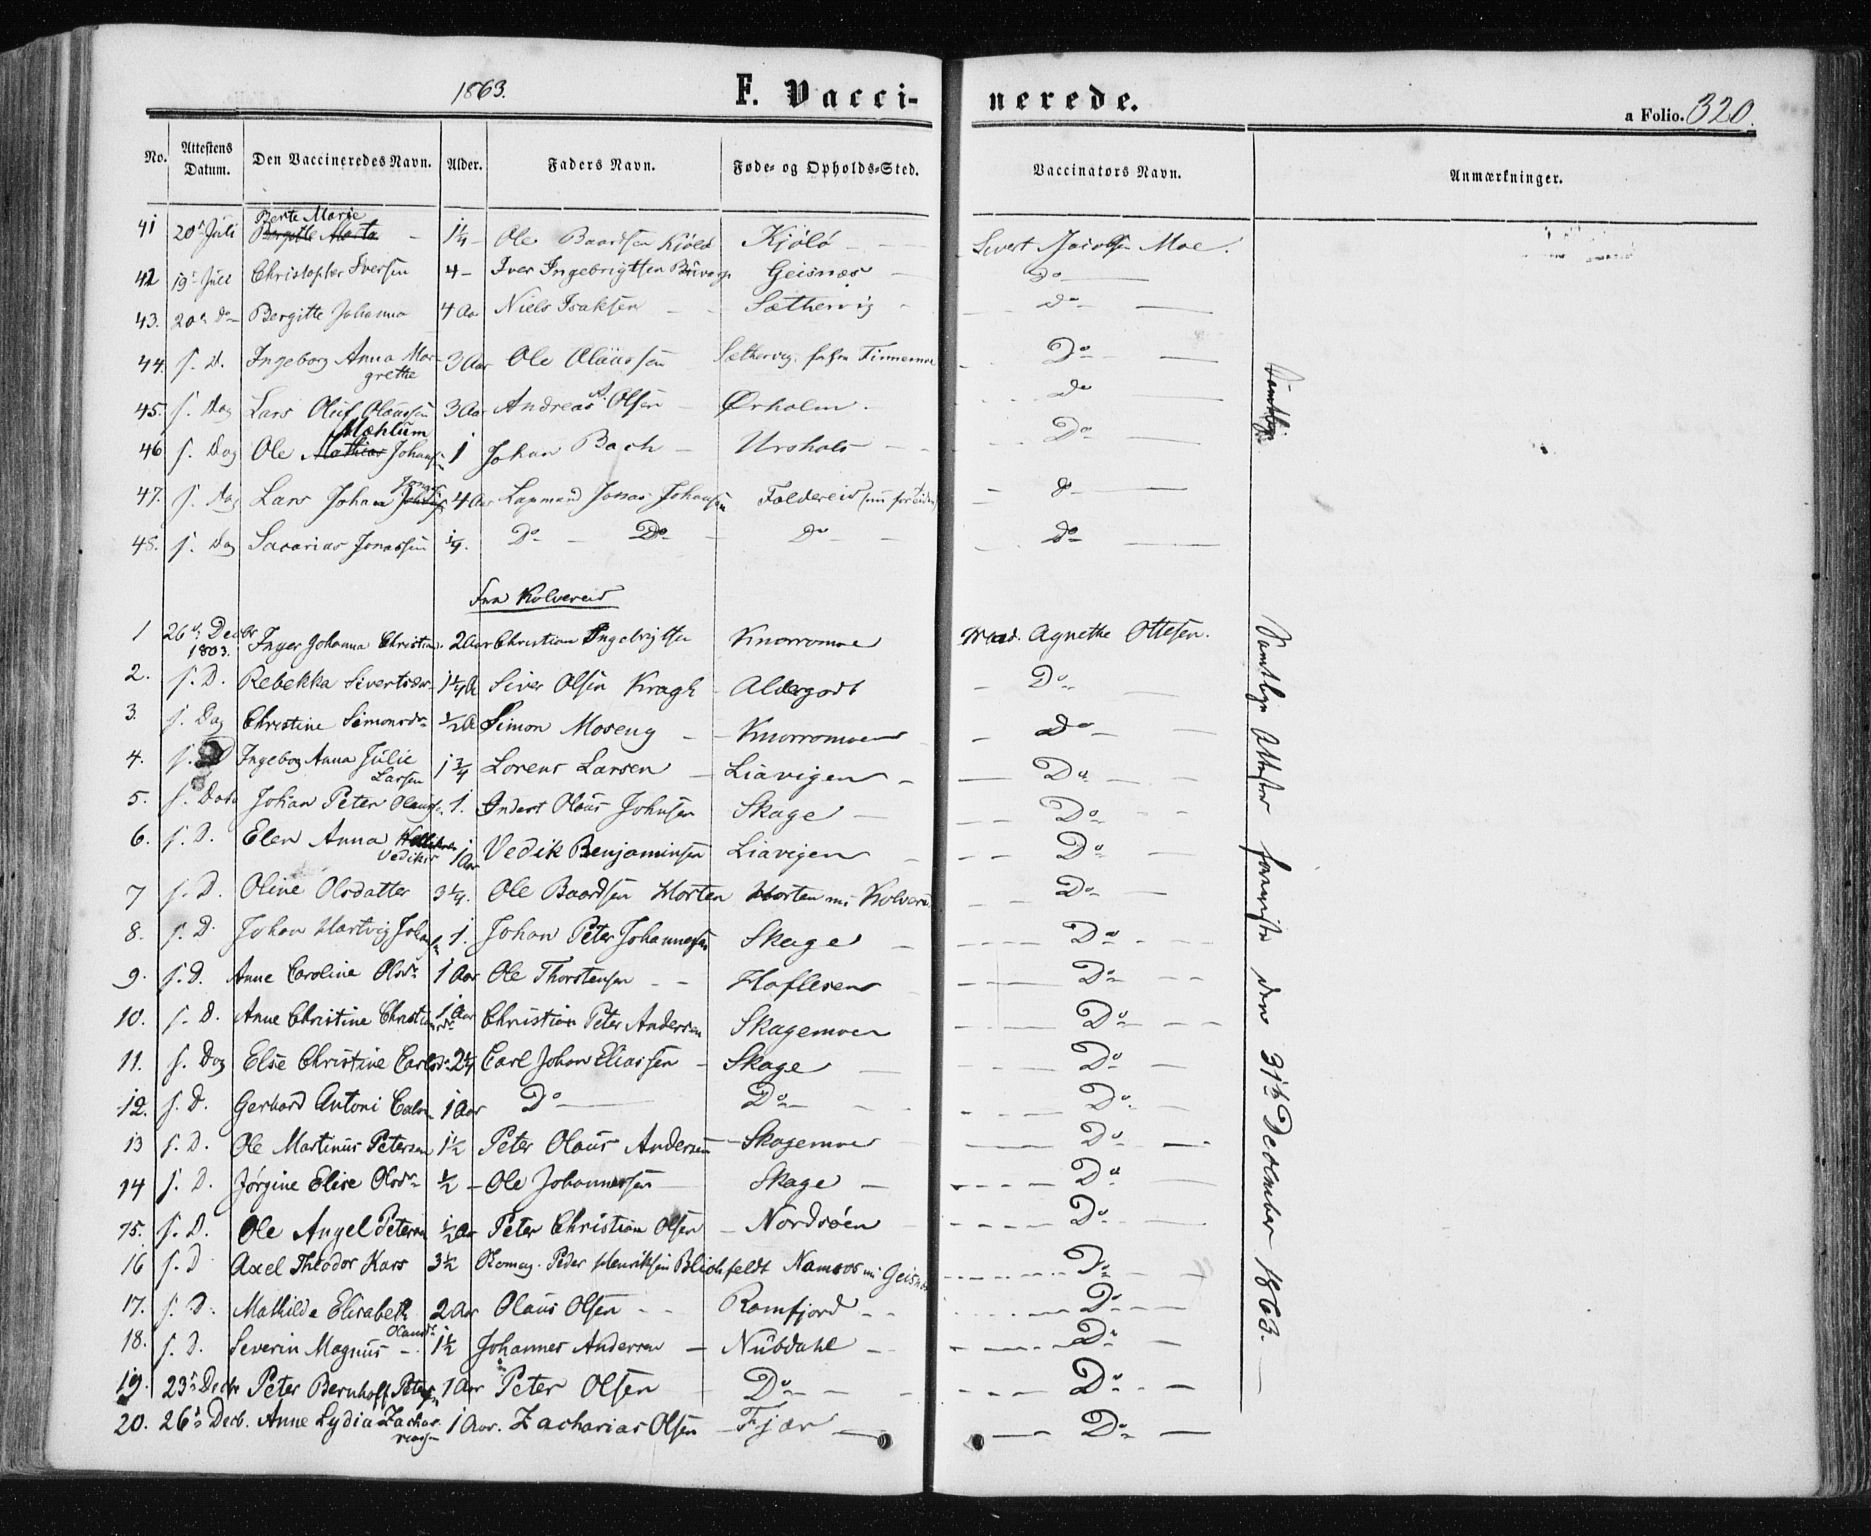 1863.
F. Vacci- nerede.
a Folio. 320.
No. Attestens Datum. Den Vaccineredes Navn. Alder. Faders Navn. Føde- og Opholds-Sted. Vaccinators Navn. Anmærkninger.
Berte Marie
41 20de Juli Bergitte Marta - 1¼ - Ole Baardsen Kjölö Kjölö - Sivert Jacobsen Moe.
42 19de Juli Christopher Iversen 4 - Iver Ingebrigtsen Geisnæs - Do
43. 20de Do Bergitte Johanna 4 Aar Niels Isaksen - Sætherviq - Do
44. s. D. Ingeborg Anna Mar- 3 Aar Ole Olaussen Sæthervig. Finnemoe - Do
grethe
45. s. Dag Lars Oluf Olaussen 3 Aar Andreas Olsen - Ørholm. - Do
Mæhlum
46 s. Dag Ole Mathias Johansen 1 Johan Bach - Urshals - Do
Jonas
47. s. Dag Lars Johan 4 Aar Lapmand Jonas Johansen Foldereid - Do
48. s. Dag Sacarias Jonassen ¼. Do - Do - Do - Do
Fra Kolvereid
1 26de Decbr Inger Johanna Christian. 2 Aar Christian Ingebrigtsen Knorromoe Mad. Agnethe Ottesen.
1863.
2. s. D. Rebekka Sivertsdr 1¼ A Siver Olsen Kragh - Aldergodt - Do
3. s. Dag Christine Simonsdr ½ A Simon Moseng - Knorromoen - Do
4. s. D Ingeborg Anna Julie 1¾ Lorens Larsen - Liavigen - Do
Larsen
5. s. Dato Johan Peter Olaus 1. Olaus Johnsen Skage - Do
6. s. D. Elen Anna 1 Aar Vedik Benjaminsen Liavigen - Do
Vediksdr
7 s. D. Oline Olsdatter 3¼. Ole Baardsen Horten Horten nu Kolvereid - Do
8. s. D. Johan Hartvig Johansen 1. Johan Peter Johannessen Skage - Do
9. s. D. Anne Caroline Olsdr 1 Aar Ole Thorstensen - Haflesen - Do
10. s. D. Anne Christine Christiansdr 1 Aar Christian Peter Andersen Skagemoen - Do
11. s. Dag Else Christine Carlsdr 2¼ Carl Johan Eliassen - Skage - Do
12. s. D. Gerhard Antoni Carlsen 1 Aar Do - Do - Do
13 s. D. Ole Martinus Petersen 1½ Peter Olaus Andersen - Skagemoen - Do
14 s. D. Jørgine Elise Olsdr ½ - Ole Johannessen Skage - Do
15. s. D. Ole Angel Petersen ½ Aar Peter Christian Olsen - Nordsöen - Do
16 s. D Axel Theodor Kars 3½ Skomag. Peder Henriksen Blichfeldt Namsos nu Geisnæs - Do
17. s. D. Mathilde Elisabeth 2 Aar Olaus Olsen - Ramfjord - Do
Olausdr
18. s. D. Severin Magnus - 1½ Johannes Andersen - Nubdahl - Do
19. 23de Decbr Peter Bernhoff Petersen 1 Aar Peter Olsen Do - Do
20. 26de Decb. Anne Lydia Zachar- 1 Aar. Zacharias Olsen - Fjær - Do
riassen
Samtlige
Samtlige Attester foreviste den 31te December 1863.